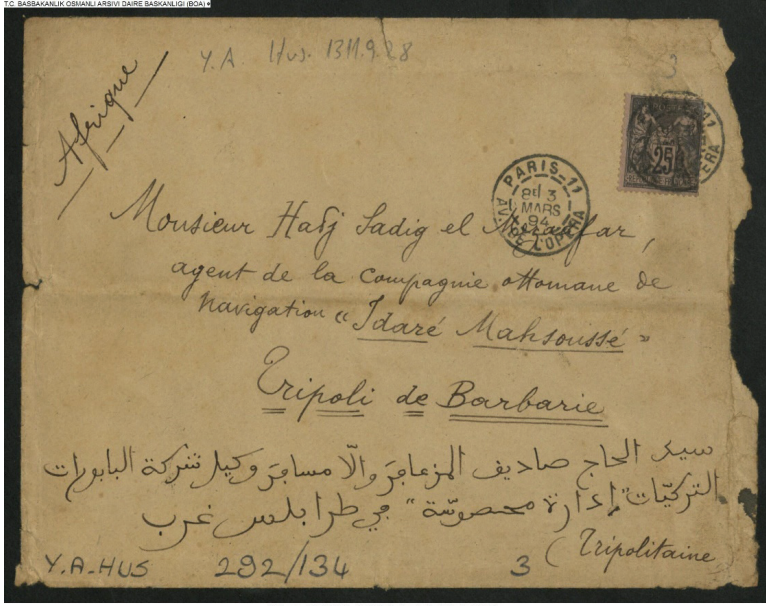 T.C. BASBAKANLIK OSMANLI ARSIVI DAIRE BASKANLIGI (BOA)
Y.A Hus. 1311.9.28
3
Afrique
25
PARIS-11
3
MARS
94
AV. DE L'OPERA
Monsieur Hadj Sadig el
agent de la Compagnie ottomane de
navigation "Idaré Mahsoussé"
Tripoli de Barbarie
سيد الحاج صاديف المزعافر والّا مسافر وكيل شركة البابورات
التركيّات "إدارة محصوسّة" في طرابلس غرب
(Tripolitaine
Y.A-HUS 292/134 3